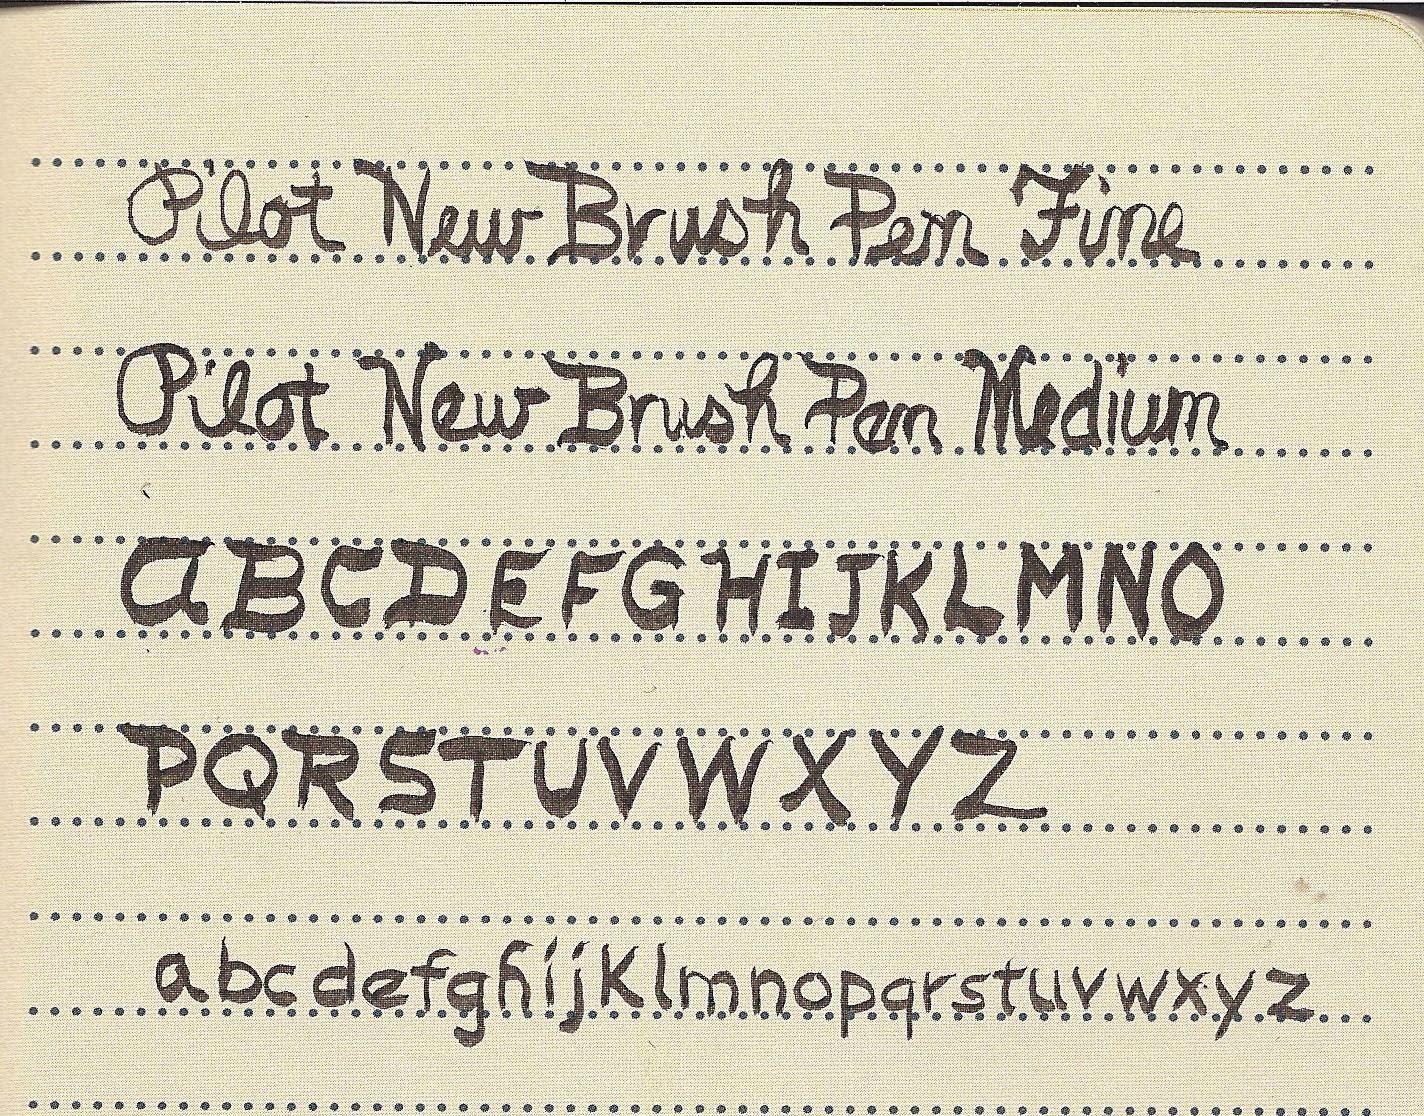 Pilot New Brush Pen Fine
Pilot New Brush Pen Medium
aBCDEFGHIJKLMNO
PQRSTUVWXYZ
abcdefghijklmnopqrstuvwxyz